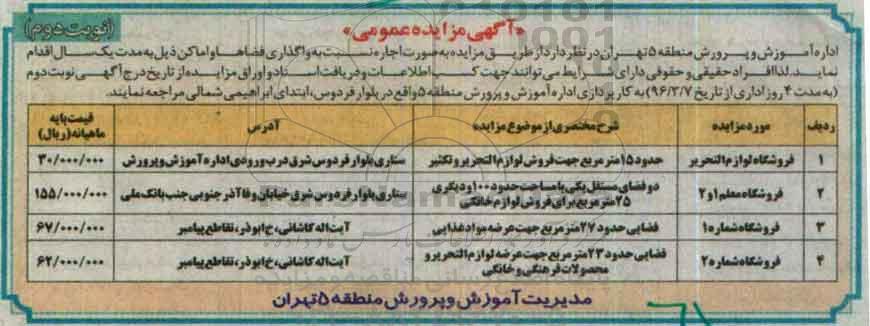 «آگهی مزایده عمومی»
(نوبت دوم)
اداره آموزش و پرورش منطقه ۵ تهران در نظر دارد از طریق مزایده به صورت اجاره نسبت به واگذاری فضاها و اماکن ذیل به مدت یک سال اقدام
نماید. لذا افراد حقیقی و حقوقی دارای شرایط می توانند جهت کسب اطلاعات و دریافت اسناد و اوراق مزایده از تاریخ درج آگهی نوبت دوم
(به مدت ۴ روز اداری از تاریخ ۹۶/۳/۷) به کارپردازی اداره آموزش و پرورش منطقه ۵ واقع در بلوار فردوس، ابتدای ابراهیمی شمالی مراجعه نمایند.
ردیف مورد مزایده شرح مختصری از موضوع مزایده آدرس قیمت پایه ماهیانه (ریال)
۱ فروشگاه لوازم التحریر حدود ۱۵ متر مربع جهت فروش لوازم التحریر و تکثیر ستاری بلوار فردوس شرق درب ورودی اداره آموزش و پرورش ۳۰/۰۰۰/۰۰۰
۲ فروشگاه معلم ۱ و ۲ دو فضای مستقل یکی با مساحت حدود ۱۰۰ و دیگری ۲۵ متر مربع برای فروش لوازم خانگی ستاری بلوار فردوس شرق خیابان وفا آذر جنوبی جنب بانک ملی ۱۵۵/۰۰۰/۰۰۰
۳ فروشگاه شماره ۱ فضایی حدود ۲۷ متر مربع جهت عرضه مواد غذایی آیت اله کاشانی، خ ابوذر، تقاطع پیامبر ۶۷/۰۰۰/۰۰۰
۴ فروشگاه شماره ۲ فضایی حدود ۲۳ متر مربع جهت عرضه لوازم التحریر و محصولات فرهنگی و خانگی آیت اله کاشانی، خ ابوذر، تقاطع پیامبر ۶۲/۰۰۰/۰۰۰
مدیریت آموزش و پرورش منطقه ۵ تهران